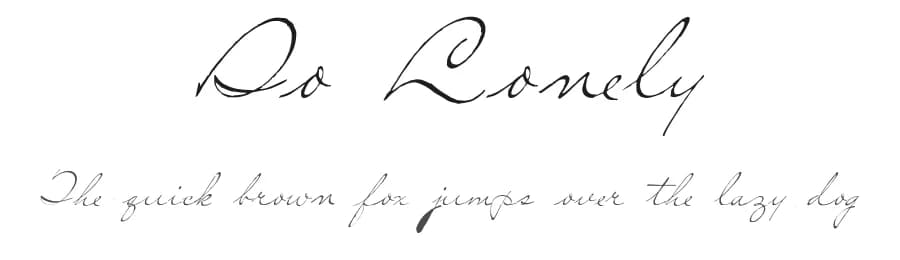 Do Lonely
The quick brown fox jumps over the lazy dog